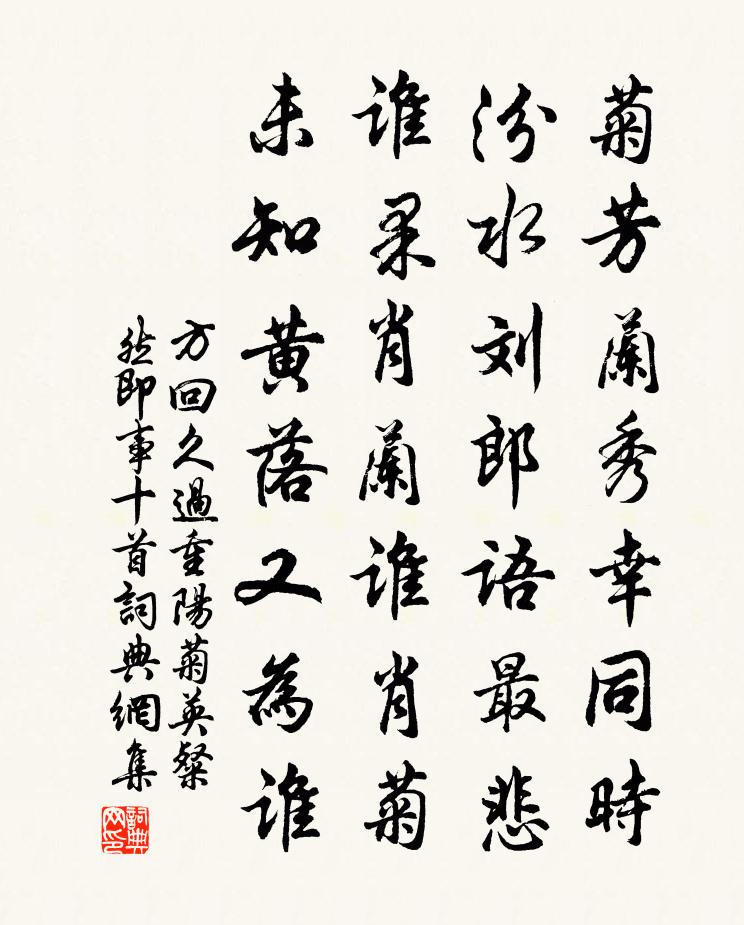 菊芳蘭秀幸同時
汾水刘郎語最悲
誰果肖蘭誰肖菊
未知黄落又為誰
方回久過重陽菊英粲
然即事十首詞典網集
詞典
网印